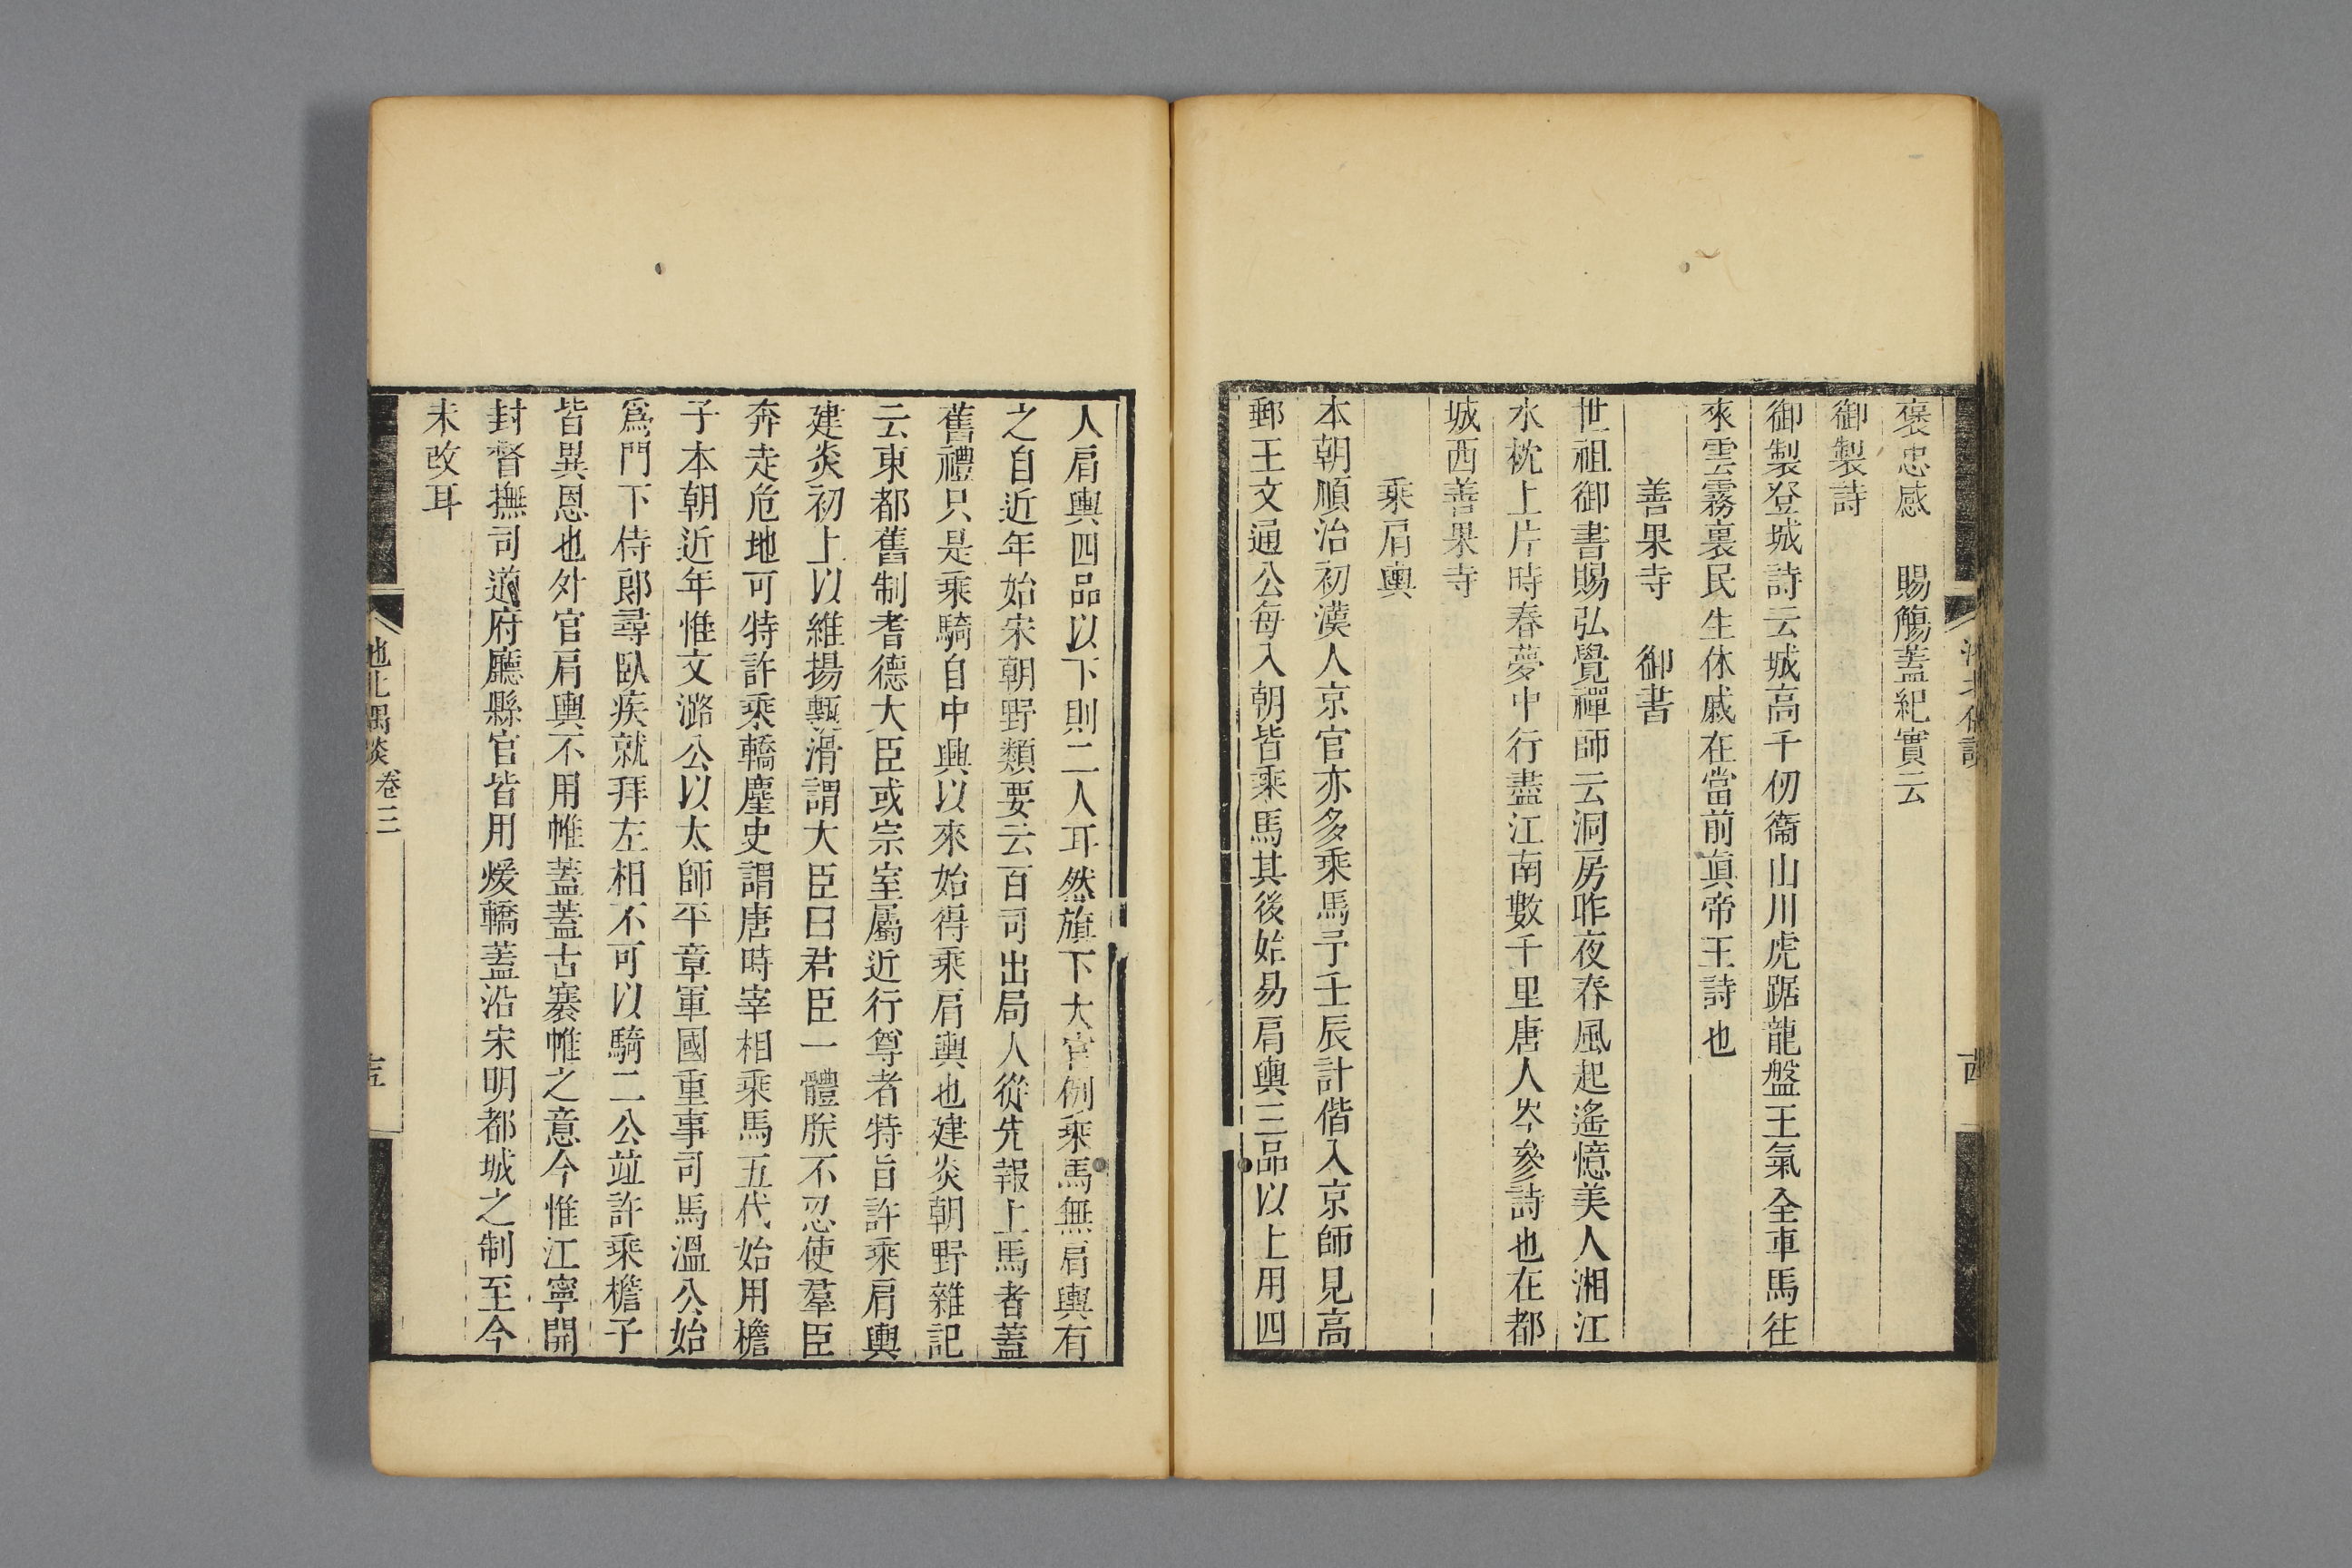 褒忠感　賜觴蓋紀實云
御製詩
御製登城詩云城高千仞衞山川虎踞龍盤王氣全車馬往
來雲霧裏民生休戚在當前眞帝王詩也
善果寺　御書
世祖御書賜弘覺禪師云洞房昨夜春風起遙憶美人湘江
水枕上片時春夢中行盡江南數千里唐人岑參詩也在都
城西善果寺
乘肩輿
本朝順治初漢人京官亦多乘馬予壬辰計偕入京師見高
郵王文通公每入朝皆乘馬其後始易肩輿三品以上用四
人肩輿四品以下則二人耳然旗下大官例乘馬無肩輿有
之自近年始宋朝野類要云百司出局人從先報上馬者蓋
舊禮只是乘騎自中興以來始得乘肩輿也建炎朝野雜記
云東都舊制耆德大臣或宗室屬近行尊者特旨許乘肩輿
建炎初上以維揚甎滑謂大臣曰君臣一體朕不忍使羣臣
奔走危地可特許乘轎麈史謂唐時宰相乘馬五代始用檐
子本朝近年惟文潞公以太師平章軍國重事司馬溫公始
爲門下侍郎尋臥疾就拜左相不可以騎二公竝許乘檐子
皆異恩也外官肩輿不用帷蓋蓋古褰帷之意今惟江寧開
封督撫司道府廳縣官皆用煖轎蓋沿宋明都城之制至今
未改耳
池北偶談　卷三